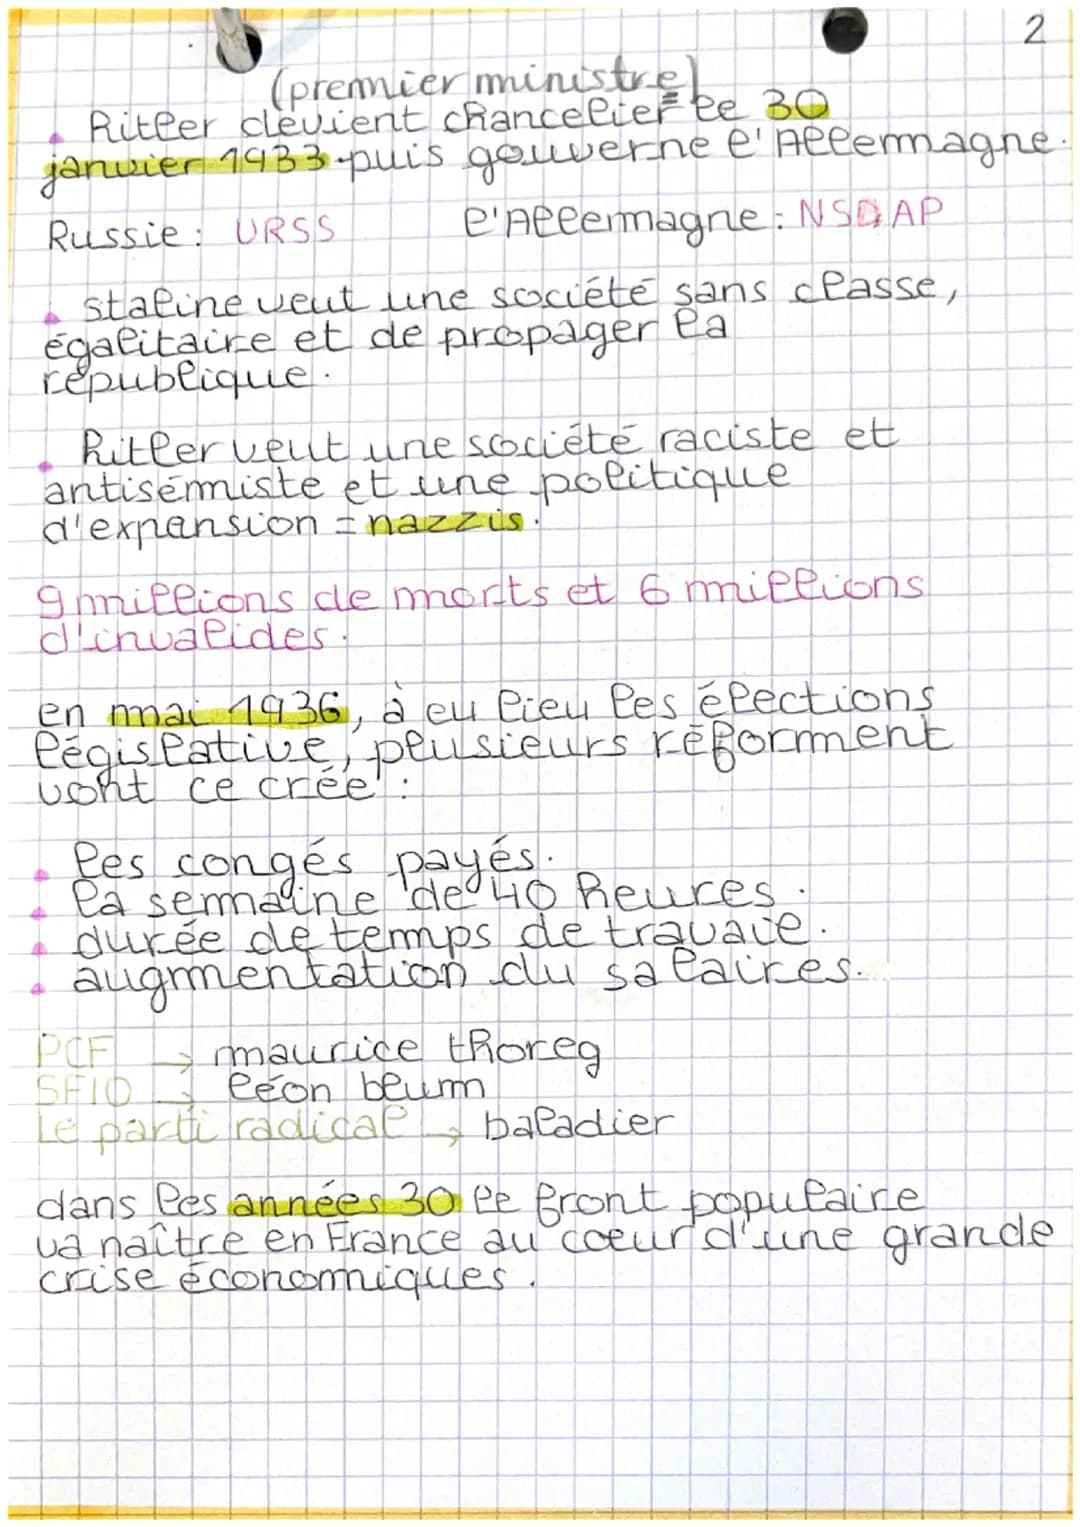 2
(premier ministre)
Hitler devient chancelier le 30
janvier 1933 puis gouverne l'Allemagne.
Russie : URSS l'Allemagne : NSDAP
staline veut une société sans classe,
égalitaire et de propager la
république.
Hitler veut une société raciste et
antisémiste et une politique
d'expansion = nazzis.
9 millions de morts et 6 millions
d'invalides.
en mai 1936, à eu lieu les élections
législative, plusieurs réforment
vont ce crée :
les congés payés.
la semaine de 40 heures.
durée de temps de travaie.
augmentation du salaires.
PCF → maurice thoreg
SFIO → léon blum
Le parti radical → baladier
dans les années 30 le front populaire
va naître en France au coeur d'une grande
crise économiques.